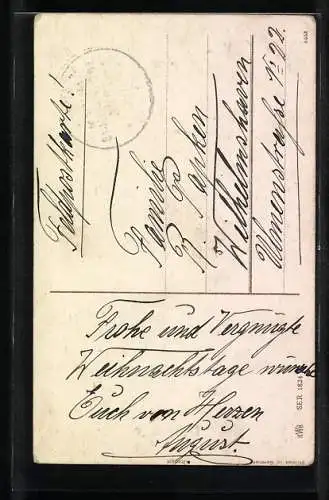 Feldpostkarte!
Familie
R. Papken
Wilhelmshaven
Ulmenstraße № 22.
Frohe und Vergnügte
Weihnachtstage wünscht
Euch von Herzen
August.
SER. 1834